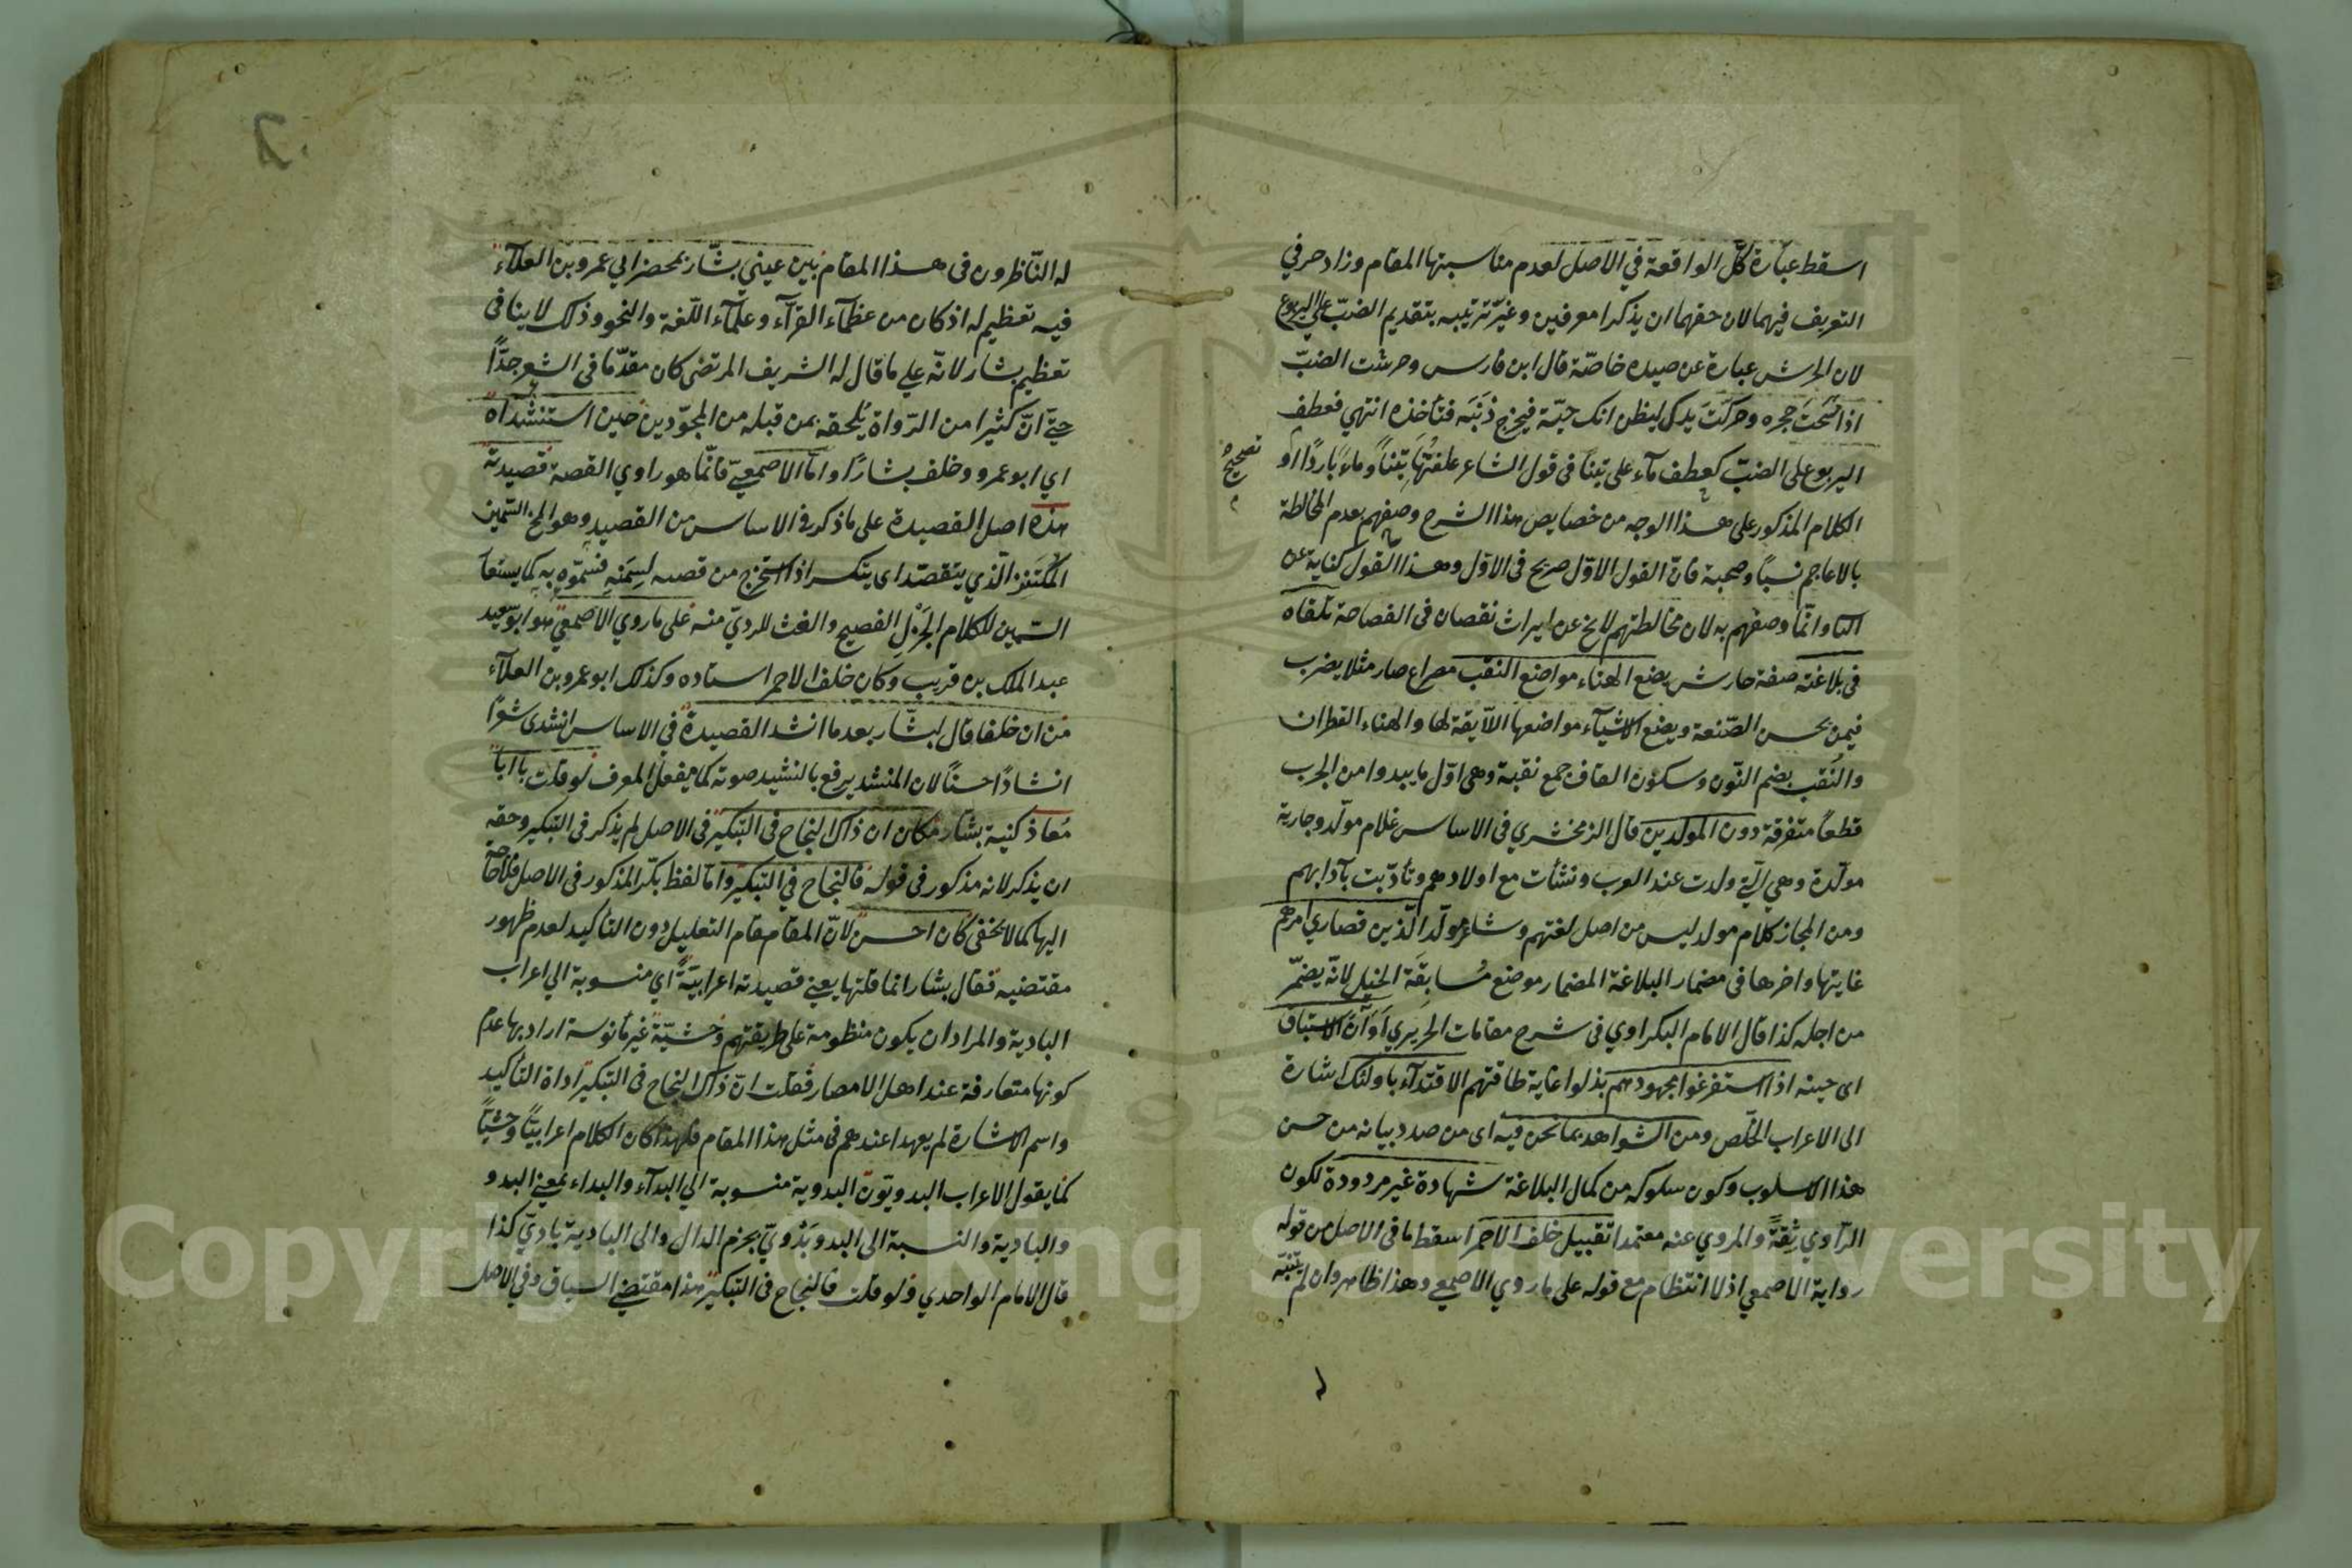 اسقط عبارة كلّ الواقعة في الاصل لعدم مناسبتها المقام وزاد حرفي
التعريف فيهما لان حقهما ان يذكرا معرفين وغيّر ترتيبه بتقديم الضبّ على اليربوع
لان الحرش عبارة عن صيده خاصّة قال ابن فارس وحرشت الضبّ
اذا مسحت جحره وحركت يدك ليظن انك حيّة فيخرج ذنَبَه فتأخذه انتهي فعطف
اليربوع على الضبّ كعطف مآء على تبناً في قول الشاعر علفتُها تبناً وماءً باردًا او
تصحيح
الكلام المذكور على هذا الوجه من خصايص هذا الشرح وصفهم بعدم المخالطة
بالاعاجم نسباً وصحبة فانّ القول الاوّل صريح في الاوّل وهذا القول كناية عن
الثا وانّما وصفهم به لان مخالطتهم لا يخ عن ايراث نقصان في الفصاحة تلقاه
في بلاغته صفة حارش يضع الهناء مواضع النقب مصراع صار مثلا يضرب
فيمن يحسن الصّنعة ويضع الاشيآء مواضعها اللآيقة لها والهناء القطران
والنُقب بضم النّون وسكون القاف جمع نقبة وهي اوّل ما يبدوا من الجرب
قطعاً متفرقة دون المولدين قال الزمخشري في الاساس غلام مولّد وجارية
مولّدة وهي الّتي ولدت عند العرب ونشأت مع اولادهم وتأدّبت بآدابهم
ومن المجاز كلام مولد ليس من اصل لغتهم وشاعر مولّد الّذين قصاري امرهم
غايتها واخرها في مضمار البلاغة المضمار موضع مُسابقَة الخيل لانّه يضمّر
من اجله كذا قال الامام البكراوي في شرح مقامات الحريري اوَآن الاستباق
اى حينه اذا استفرغوا مجهودهم بذلوا غاية طاقتهم الاقتدآء باولئك اشارة
الى الاعراب الخلّص ومن الشواهد بما نحن فيه اى من صدد بيانه من حسن
هذا الاسلوب وكون سلوكه من كمال البلاغة شهادة غير مردودة لكون
الرّاوي ثِقةً والمروي عنه معتمدا تقبيل خلف الاحمر اسقط ما في الاصل من قوله
رواية الاصمعي اذ لا انتظام مع قوله على ما روي الاصمعي وهذا ظاهر وان لم يتنبّه
له النّاظرون في هذا المقام بين عيني بشّار بمحضر ابي عمرو بن العلآء
فيه تعظيم له اذ كان من عظمآء القرّآء وعلمآء اللّغة والنحو وذلك لا ينافي
تعظيم بشار لانّه علي ما قال له الشريف المرتضى كان مقدّما في الشعر جدًّا
حتّى انّ كثيرا من الرّواة يُلحقه بمن قبله من المجوّدين حين استنشداه
اي ابو عمرو وخلف بشارًا واما الاصمعيّ فانّما هو راوي القصة قصيدته
هذه اصل القصيدة على ما ذكر في الاساس من القصيد وهو المخ السّمين
المُكتَنز الّذي يتقصّد اى يتكسر اذا استخرج من قصبه لِسِمَنِه فسمّوه به كما يستعا
السّمين للكلام الجَزْلِ الفصيح والغث للرديّ منه على ما روي الاصمعيّ هو ابو سعيد
عبد الملك بن قريب وكان خلف الاحمر استاده وكذلك ابو عمرو بن العلآء
من ان خلفا قال لبشّار بعد ما انشد القصيدة في الاساس انشدى شعرًا
انشادًا حسناً لان المنشد يرفع بالنشيد صوته كما يفعل المعرف لو قلت يا ابا
مُعاذ كنية بشّار مكان ان ذاك النجاح في التبكير في الاصل لم يذكر في التبكير وحقه
ان يذكر لانه مذكور في قوله فالنجاح في التبكير وامّا لفظ بكّرا المذكور في الاصل فلا حاجة
اليها كما لا يخفى كان احسن لانّ المقام مقام التعليل دون التاكيد لعدم ظهور
مقتضيه فقال بشار انما قلتها يعني قصيدته اعرابيّةً اي منسوبة الي اعراب
البادية والمراد ان يكون منظومة على طريقتهم وحشيّة غير مأنوسة اراد بها عدم
كونها متعارفة عند اهل الامصار فقلت انّ ذاك النجاح في التبكير اداة التأكيد
واسم الاشارة لم يعهدا عندهم في مثل هذا المقام فلهذا كان الكلام اعرابيّاً وحشيّاً
كما يقول الاعراب البدويّون البدوية منسوبة الي البدآء والبداء بمعني البدو
والبادية والنسبة الى البدو بَدْويّ بجزم الدال والى البادية باديّ كذا
قال الامام الواحدي ولو قلت فالنجاح في التبكير هذا مقتضي السياق وفي الاصل
Copyright © King Saud University